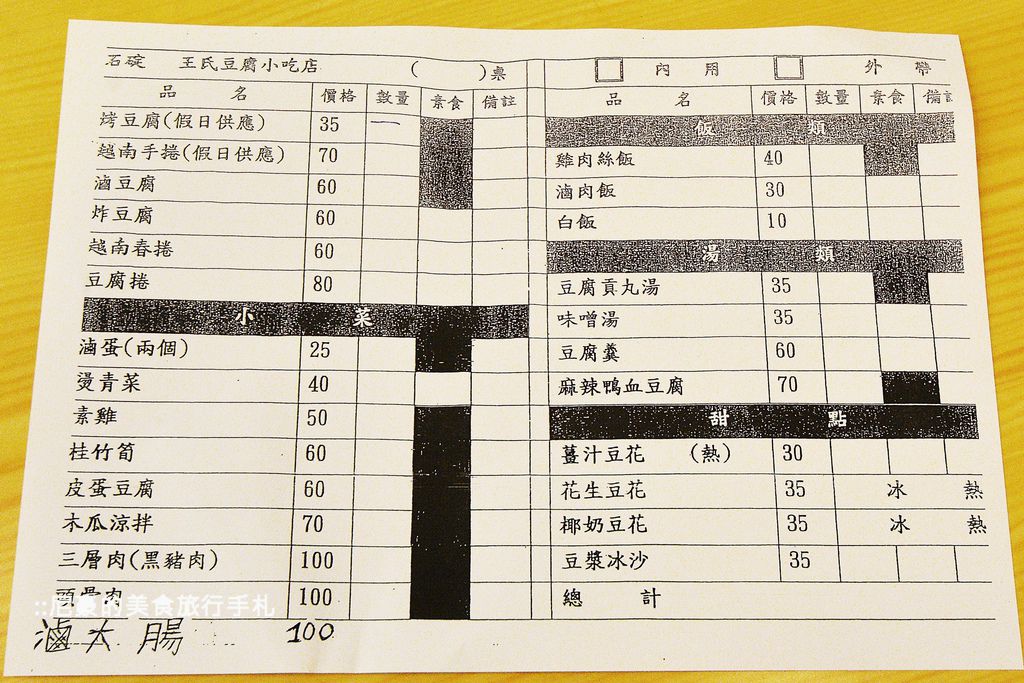 石碇 王氏豆腐小吃店 ( )桌
品 名 價格 數量 素食 備註
烤豆腐(假日供應) 35
越南手捲(假日供應) 70
滷豆腐 60
炸豆腐 60
越南春捲 60
豆腐捲 80
小 菜
滷蛋(兩個) 25
燙青菜 40
素雞 50
桂竹筍 60
皮蛋豆腐 60
木瓜涼拌 70
三層肉(黑豬肉) 100
頭骨肉 100
滷大腸 100
內 用 外 帶
品 名 價格 數量 素食 備註
飯 類
雞肉絲飯 40
滷肉飯 30
白飯 10
湯 類
豆腐貢丸湯 35
味噌湯 35
豆腐羹 60
麻辣鴨血豆腐 70
甜 點
薑汁豆花 (熱) 30
花生豆花 35 冰 熱
椰奶豆花 35 冰 熱
豆漿冰沙 35
總 計
的美食旅行手札